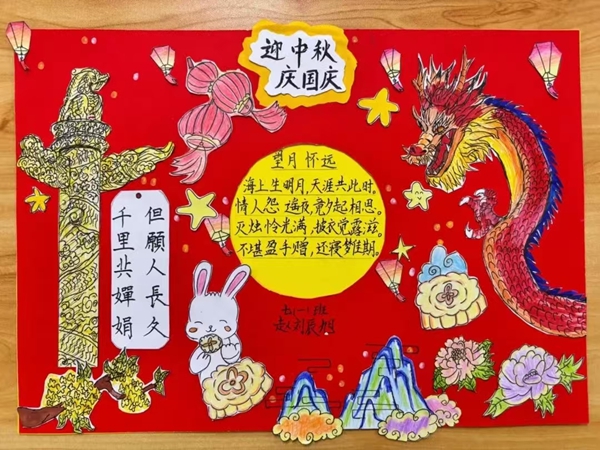 迎中秋
庆国庆
望月怀远
海上生明月,天涯共此时。
情人怨遥夜,竟夕起相思。
灭烛怜光满,披衣觉露滋。
不堪盈手赠,还寝梦佳期。
但願人長久
千里共嬋娟
七(一)班